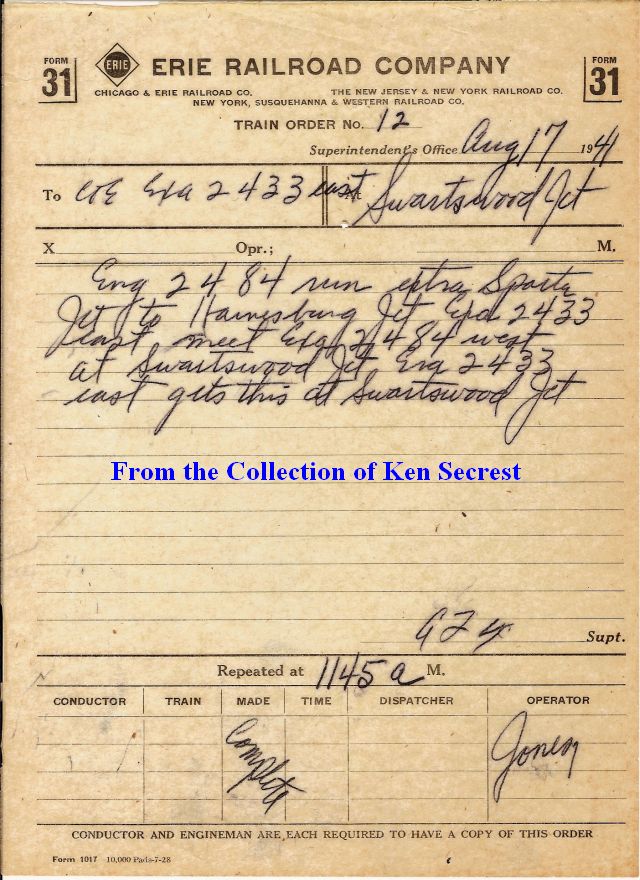 FORM 31
ERIE
ERIE RAILROAD COMPANY
FORM 31
CHICAGO & ERIE RAILROAD CO. THE NEW JERSEY & NEW YORK RAILROAD CO.
NEW YORK, SUSQUEHANNA & WESTERN RAILROAD CO.
TRAIN ORDER No. 12
Superintendent's Office Aug 17 1941
To C&E Exa 2433 east At Swartswood Jct
X Opr.; M.
Eng 2484 run extra Sparta
Jct to Hainesburg Jct Exa 2433
east meet Exa 2484 west
at Swartswood Jct Exa 2433
east gets this at Swartswood Jct
From the Collection of Ken Secrest
Supt.
Repeated at 1145 a M.
CONDUCTOR TRAIN MADE TIME DISPATCHER OPERATOR
Complete Jones
CONDUCTOR AND ENGINEMAN ARE EACH REQUIRED TO HAVE A COPY OF THIS ORDER
Form 1017 10,000 Pads-7-28